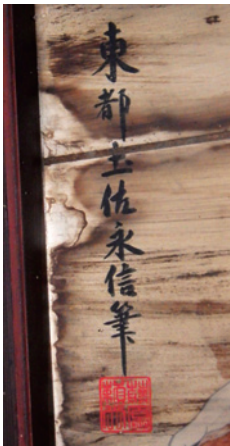 東都土佐永信筆